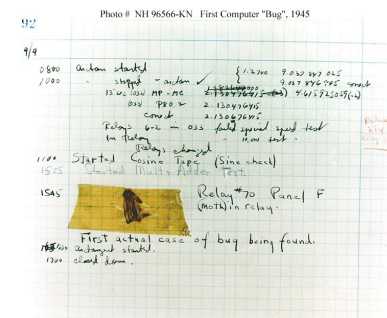 Photo # NH 96566-KN First Computer "Bug", 1945
92
9/9
0800 antan started
1000 " stopped - antan ✓ { 1.2700 9.037 847 025
9.037 846 995 correct
13"uc (032) MP-MC 2.130476415 (-3) 4.615925059 (-2)
(033) PRO 2 2.130476415
correct 2.130676415
Relays 6-2 in 033 failed special speed test
in relay " 10.000 test.
Relays changed
1100 Started Cosine Tape (Sine check)
1525 Started Mult + Adder Test.
1545 Relay #70 Panel F
(moth) in relay.
First actual case of bug being found.
1630 antangent started.
1700 closed down.